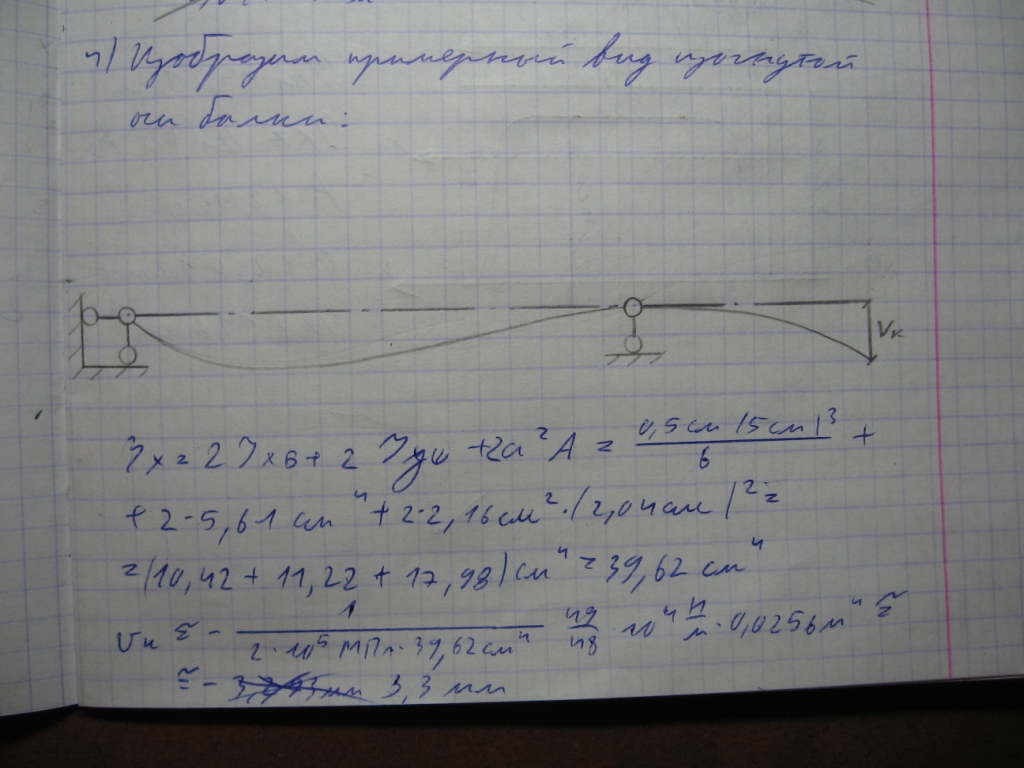 4) Изобразим примерный вид изогнутой
оси балки:
Vк
Jx = 2 Jxв + 2 Jyш + 2a² A = 0,5см (5см)³ / 6 +
+ 2·5,61 см⁴ + 2·2,16см²·(2,04см)² =
= (10,42 + 11,22 + 17,98) см⁴ = 39,62 см⁴
Vк ≅ - 1 / 2·10⁵ МПа·39,62см⁴ 49/48 · 10⁴ Н/м · 0,0256м⁴ ≅
≅ - 3,3 мм